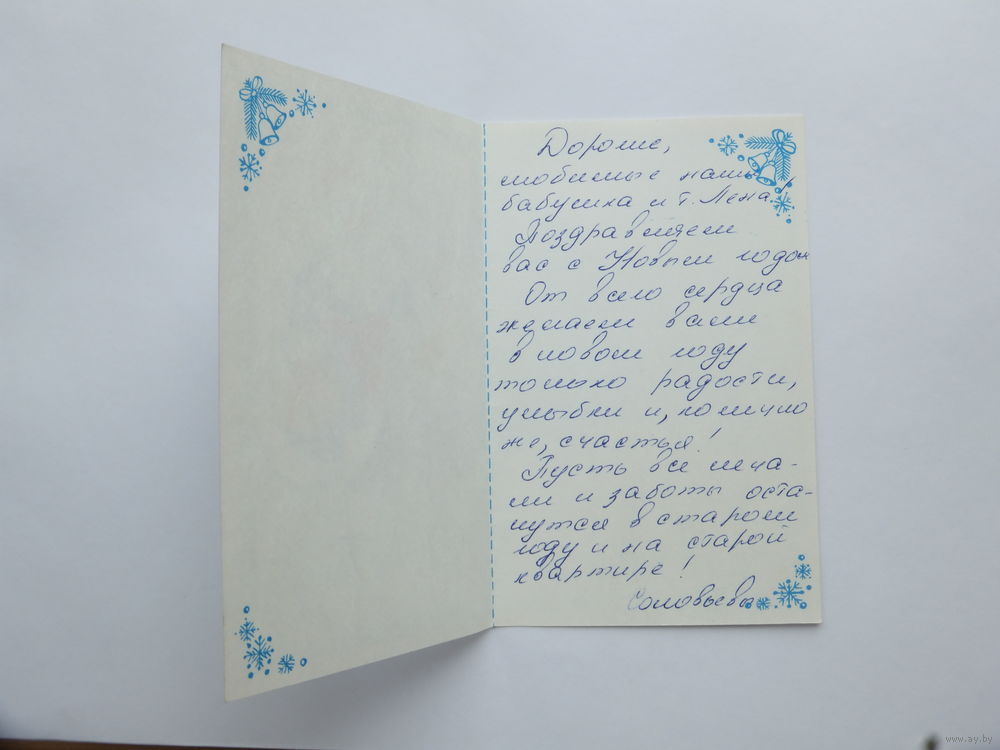 Дорогие,
любимые наши
бабушка и т. Лена!
Поздравляем
вас с Новым годом
От всего сердца
желаем вам
в новом году
только радости,
улыбки и, конечно
же, счастья!
Пусть все печа-
ли и заботы оста-
нутся в старом
году и на старой
квартире!
Соловьевы
www.ay.by